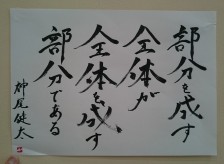 部分を成す
全体が
全体を成す
部分である
柳尾健太